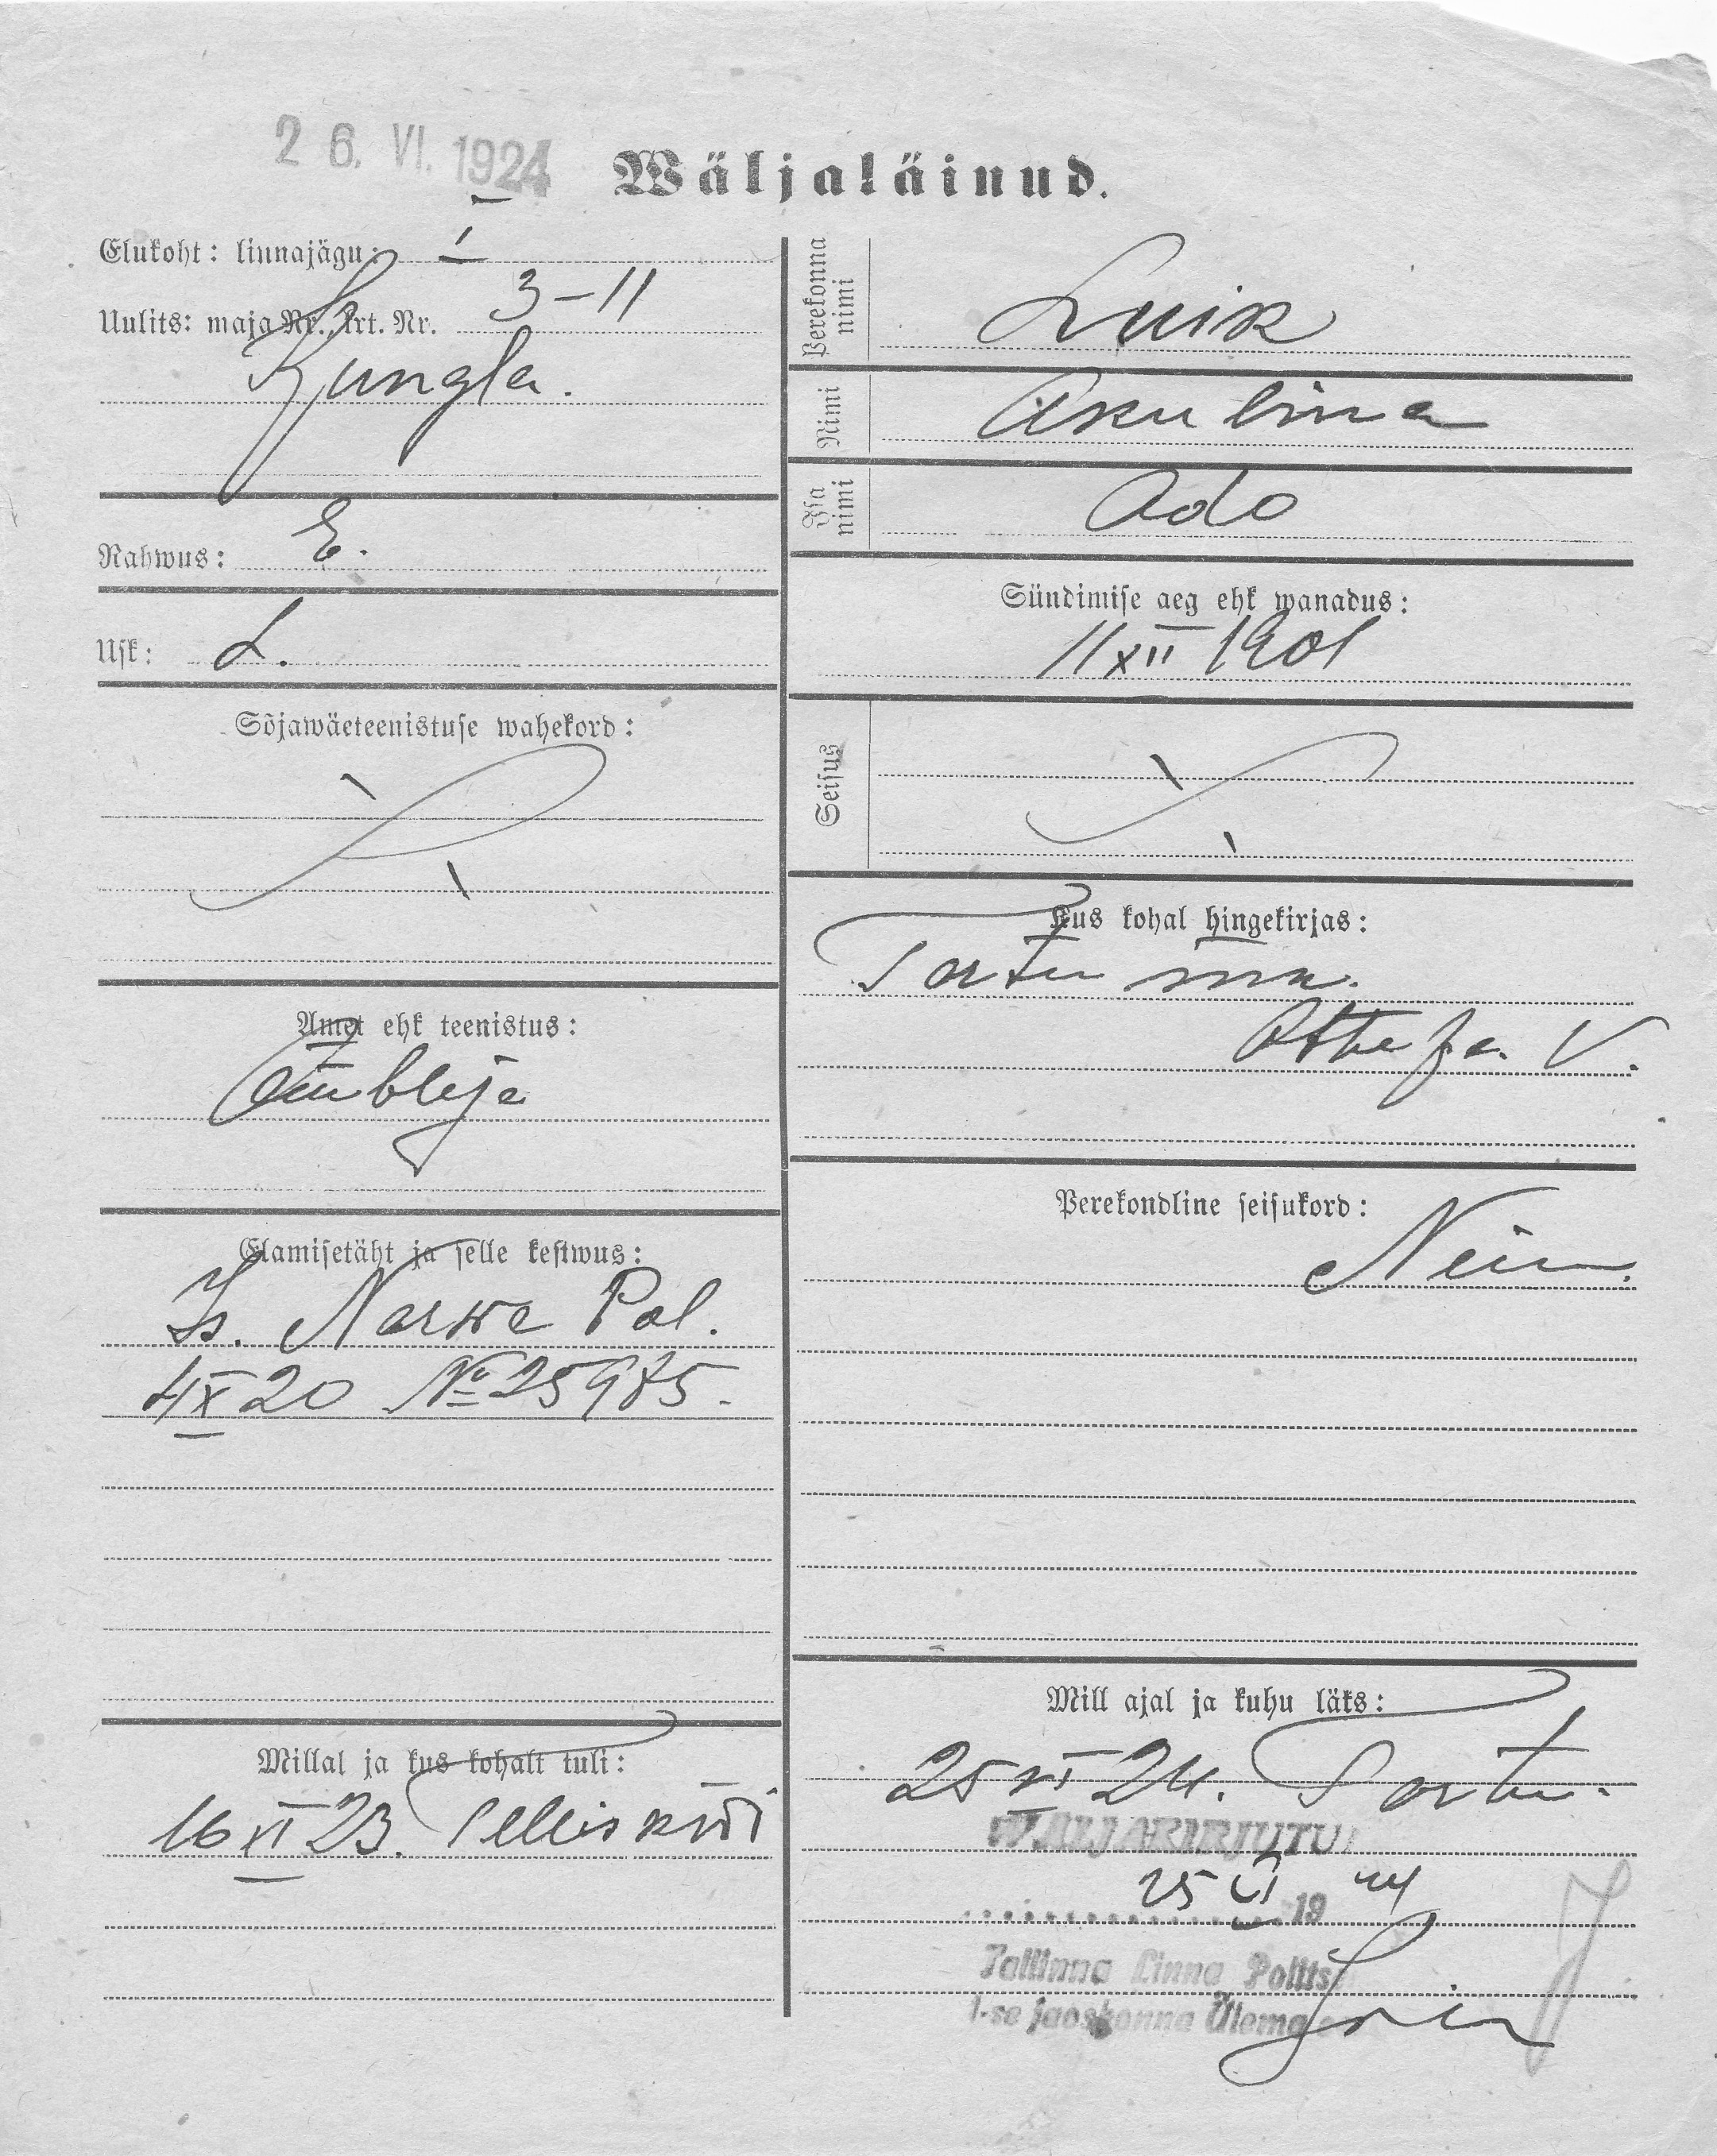 26. VI. 1924
Wäljaläinud.
Elukoht: linnajägu: I
Uulits: maja Nr., krt. Nr. 3-11
Kungla.
Rahwus: E.
Usk: L.
Sõjawäeteenistuse wahekord:
Amet ehk teenistus:
Õmbleja
Elamisetäht ja selle kestwus:
Is. Narwa Pol.
4 IX 20 № 25985.
Millal ja kus kohalt tuli:
16 XI 23. Telliskiwi
Perekonna nimi
Luik
Nimi
Akulina
Isa nimi
Ado
Sündimise aeg ehk wanadus:
11 XII 1901
Seisus
Kus kohal hingekirjas:
Tartu mk.
Otepa. V.
Perekondline seisukord:
Neiu.
Mill ajal ja kuhu läks:
25 VI 24. Tartu.
WÄLJAKIRJUTU
25 VI 19 24
Tallinna Linna Polits
I-se jaoskonna Ülema